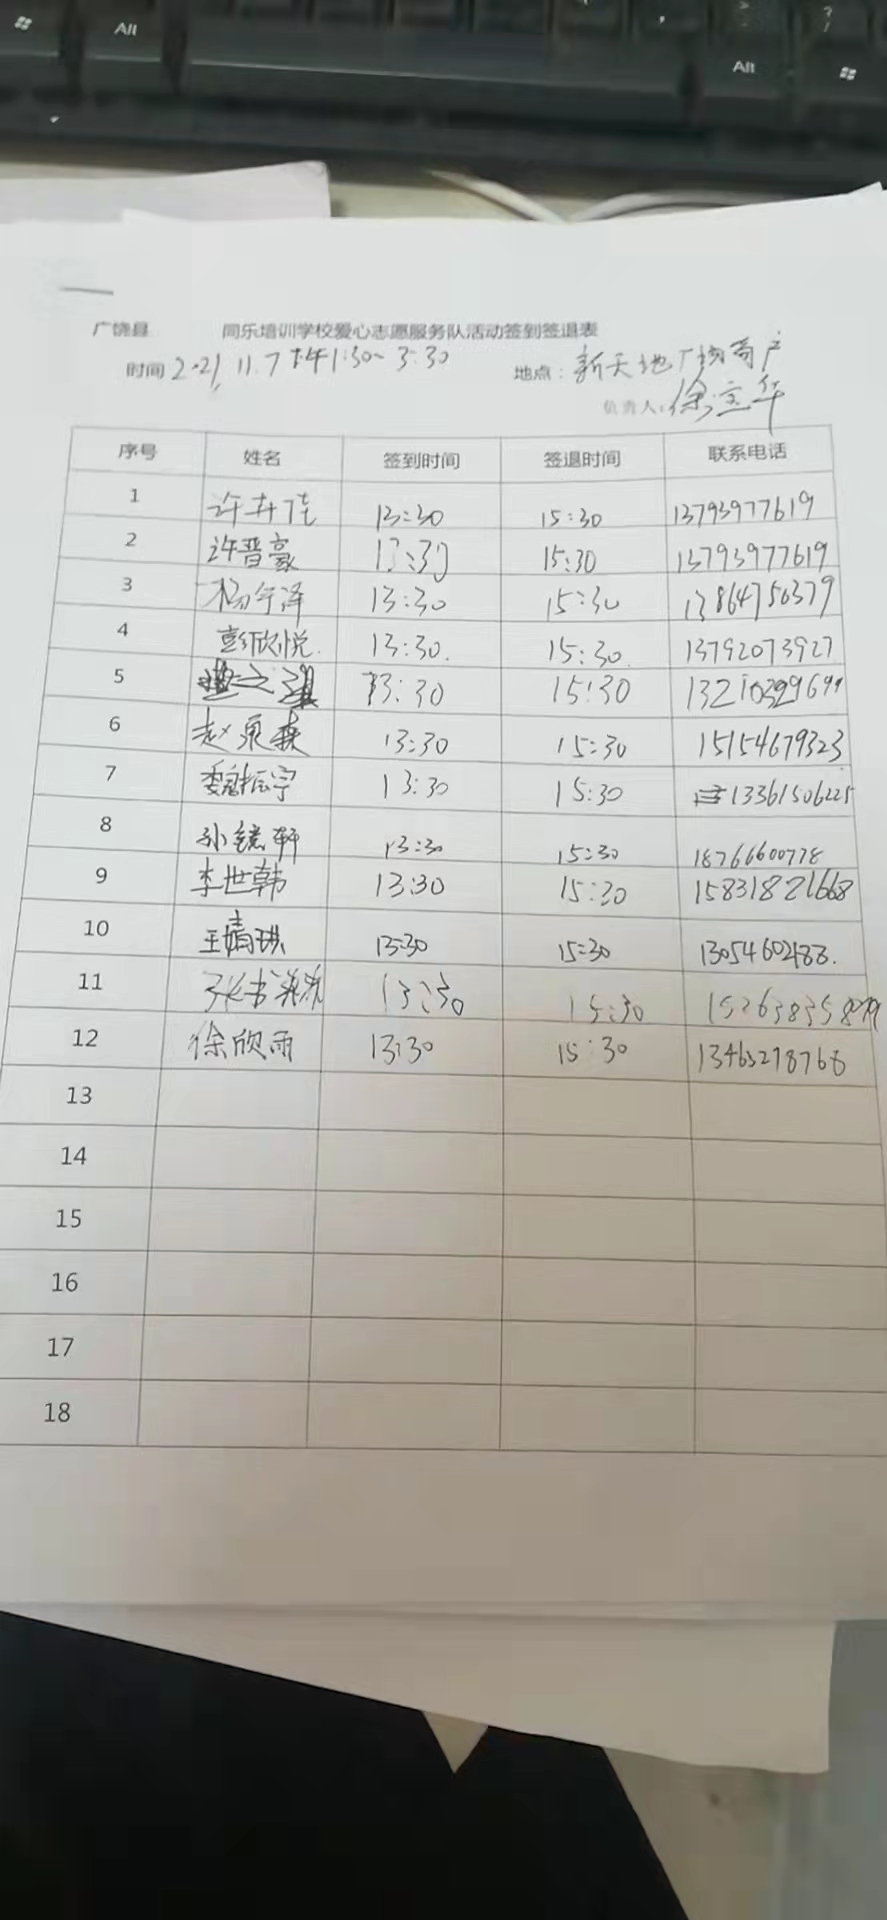 Alt
Alt
广饶县 同乐培训学校爱心志愿服务队活动签到签退表
时间 2021.11.7 下午1:30~3:30 地点：新天地广场
负责人：徐宝华
序号 姓名 签到时间 签退时间 联系电话
1 许卉佳 13:30 15:30 13793977619
2 许晋豪 13:30 15:30 13793977619
3 杨 泽 13:30 15:30 13864750379
4 彭欣悦. 13:30. 15:30. 13792073927
5 13:30 15:30
6 赵泉森 13:30 15:30 15154679323
7 魏振宇 13:30 15:30 13361506225
8 孙 轩 13:30 15:30 18766600778
9 李世韩 13:30 15:30 15831821668
10 王婧琪 13:30 15:30
11 张书 13:30 15:30
12 徐欣雨 13:30 15:30 13463278768
13
14
15
16
17
18